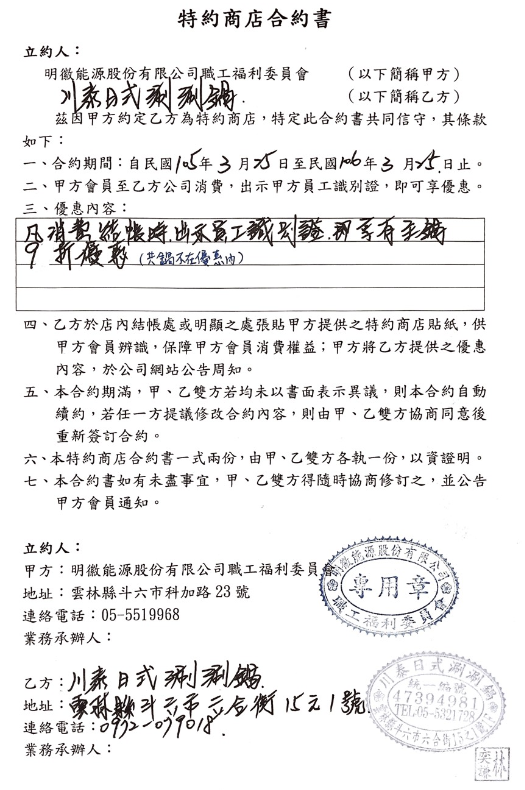 特約商店合約書
立約人：
明徽能源股份有限公司職工福利委員會 （以下簡稱甲方）
川泰日式涮涮鍋 （以下簡稱乙方）
茲因甲方約定乙方為特約商店，特定此合約書共同信守，其條款
如下：
一、合約期間：自民國105年3月25日至民國106年3月25日止。
二、甲方會員至乙方公司消費，出示甲方員工識別證，即可享優惠。
三、優惠內容：
凡消費結帳時.出示員工識別證.即享有主鍋
9折優惠（共鍋不在優惠內）
四、乙方於店內結帳處或明顯之處張貼甲方提供之特約商店貼紙，供
甲方會員辨識，保障甲方會員消費權益；甲方將乙方提供之優惠
內容，於公司網站公告周知。
五、本合約期滿，甲、乙雙方若均未以書面表示異議，則本合約自動
續約，若任一方提議修改合約內容，則由甲、乙雙方協商同意後
重新簽訂合約。
六、本特約商店合約書一式兩份，由甲、乙雙方各執一份，以資證明。
七、本合約書如有未盡事宜，甲、乙雙方得隨時協商修訂之，並公告
甲方會員通知。
立約人：
甲方：明徽能源股份有限公司職工福利委員會
地址：雲林縣斗六市科加路23號
連絡電話：05-5519968
業務承辦人：
明徽能源股份有限公司
專用章
職工福利委員會
乙方：川泰日式涮涮鍋
地址：雲林縣斗六市六合街15之1號
連絡電話：0932-039018
業務承辦人：
川泰日式涮涮鍋
統一編號
47394981
TEL:05-5321728
雲林縣斗六市六合街15之1號
林